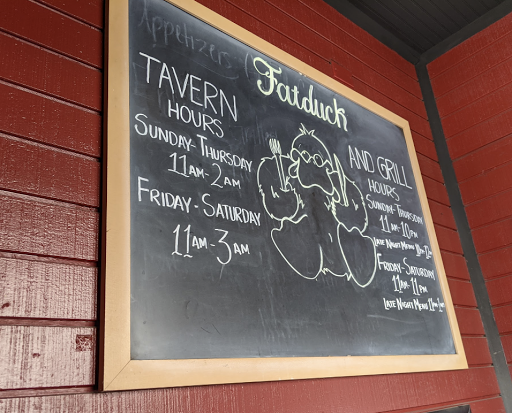 Appetizers
Fatduck
TAVERN
HOURS
SUNDAY-THURSDAY
11AM-2AM
FRIDAY-SATURDAY
11AM-3AM
AND GRILL
HOURS
SUNDAY-THURSDAY
11AM-10PM
LATE NIGHT MENU
FRIDAY-SATURDAY
11AM-11PM
LATE NIGHT MENU